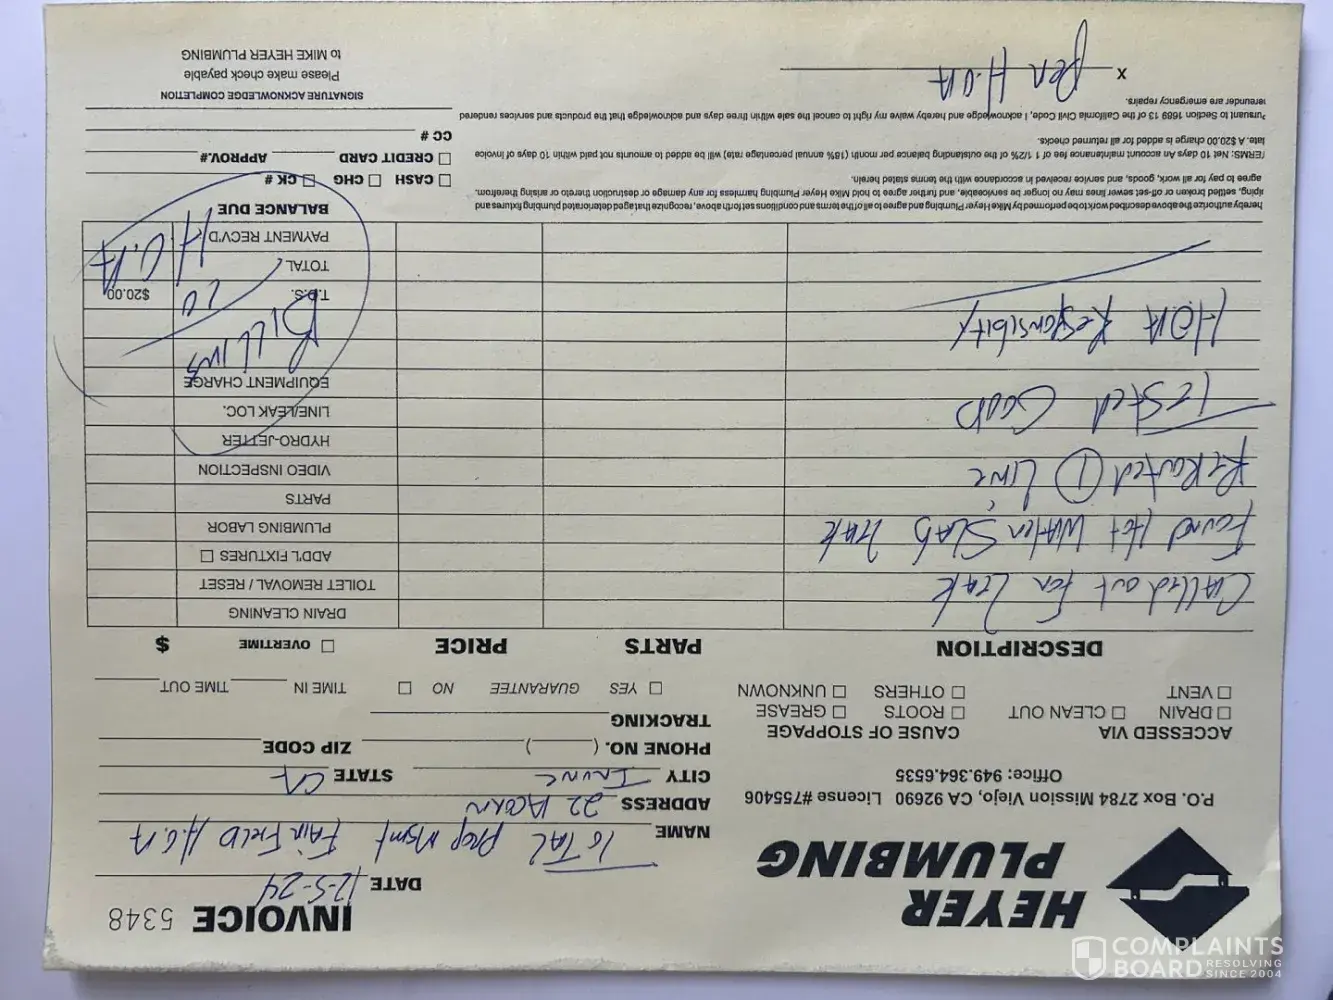 HEYER
PLUMBING
P.O. Box 2784 Mission Viejo, CA 92690 License #755406
Office: 949.364.6535
INVOICE 5348
DATE 12-5-24
NAME TOTAL Prop Mgmt FairField H.O.A
ADDRESS 22 Acorn
CITY Irvine STATE CA
PHONE NO. ( ) ZIP CODE
TRACKING
ACCESSED VIA CAUSE OF STOPPAGE
☐ DRAIN ☐ CLEAN OUT ☐ ROOTS ☐ GREASE
☐ VENT ☐ OTHERS ☐ UNKNOWN
☐ YES GUARANTEE NO ☐ TIME IN TIME OUT
DESCRIPTION PARTS PRICE ☐ OVERTIME $
Called out For Leak
Found Hot Water Slab Leak
ReRouted ① Line
Tested Good
H.O.A Responsibity
DRAIN CLEANING
TOILET REMOVAL / RESET
ADD'L FIXTURES ☐
PLUMBING LABOR
PARTS
VIDEO INSPECTION
HYDRO-JETTER
LINE/LEAK LOC.
EQUIPMENT CHARGE
Billing
T.D.S. $20.00
TOTAL
PAYMENT RECV'D
H.O.A
BALANCE DUE
hereby authorize the above described work to be performed by Mike Heyer Plumbing and agree to all of the terms and conditions set forth above, recognize that aged deteriorated plumbing fixtures and
piping, settled broken or off-set sewer lines may no longer be serviceable, and further agree to hold Mike Heyer Plumbing harmless for any damage or destruction thereto or arising therefrom.
agree to pay for all work, goods, and service received in accordance with the terms stated herein.
TERMS: Net 10 days An account maintenance fee of 1 1/2% of the outstanding balance per month (18% annual percentage rate) will be added to amounts not paid within 10 days of invoice
late. A $20.00 charge is added for all returned checks.
Pursuant to Section 1689 13 of the California Civil Code, I acknowledge and hereby waive my right to cancel the sale within three days and acknowledge that the products and services rendered
hereunder are emergency repairs.
☐ CASH ☐ CHG ☐ CK #
☐ CREDIT CARD APPROV.#
CC #
X Per H.O.A
SIGNATURE ACKNOWLEDGE COMPLETION
Please make check payable
to MIKE HEYER PLUMBING
COMPLAINTS
BOARD RESOLVING
SINCE 2004